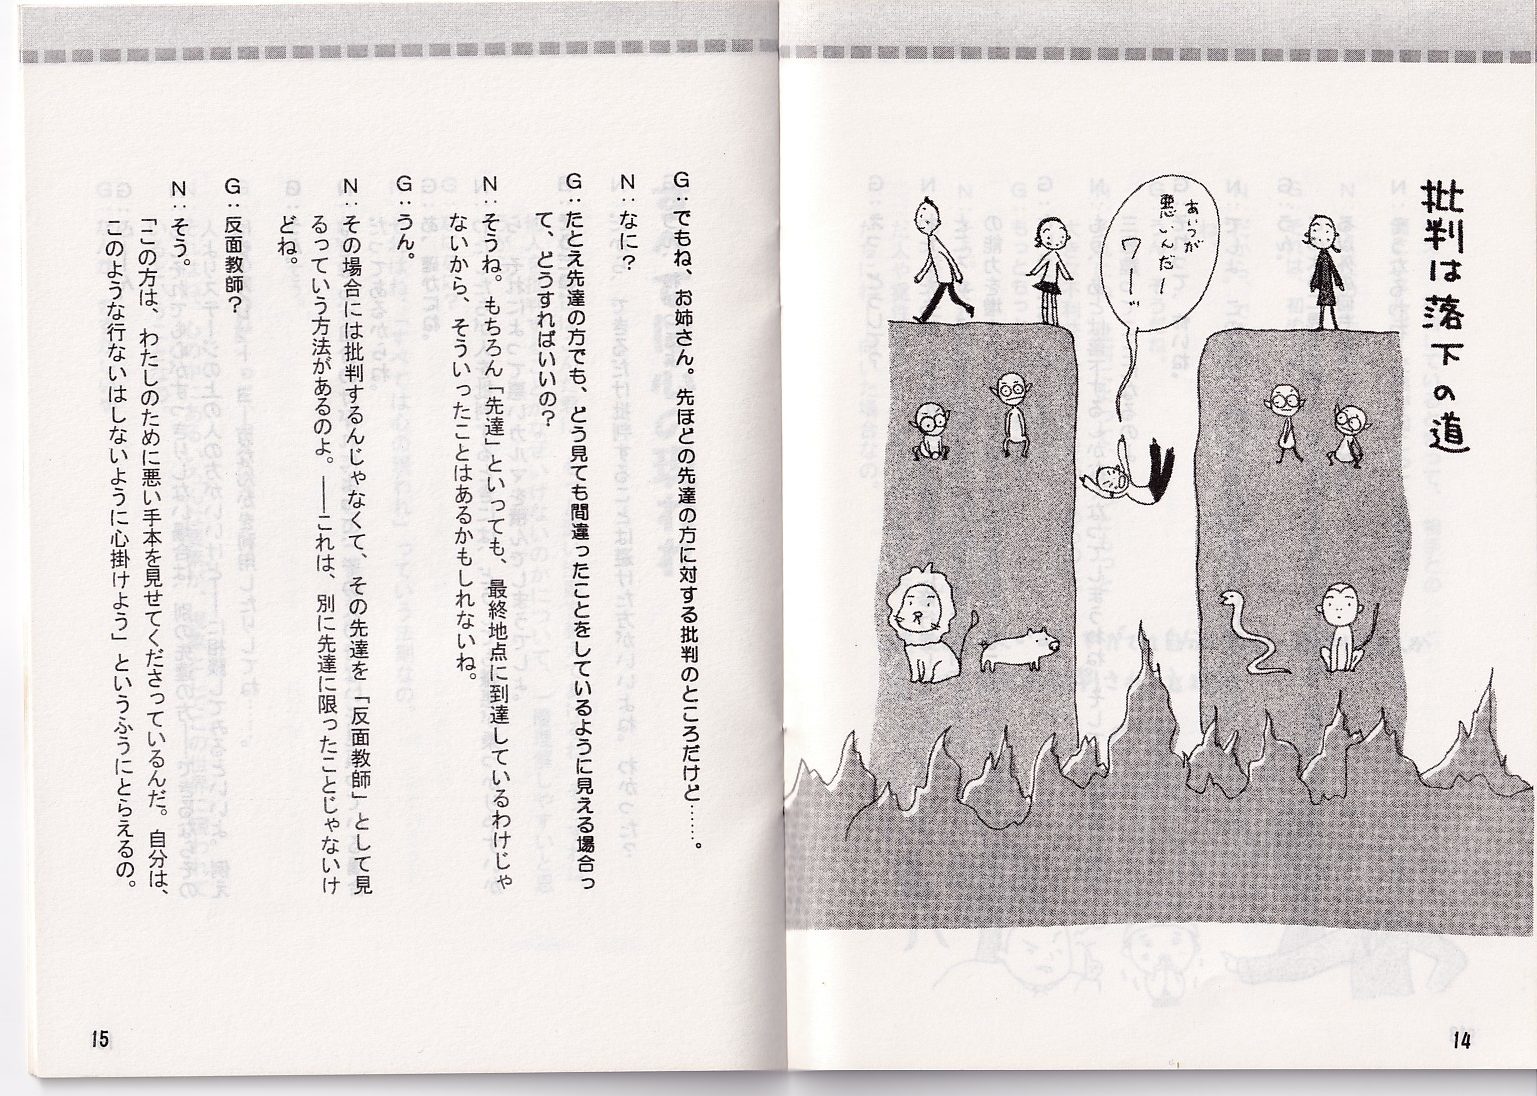 批判は落下の道
あいつが
悪いんだー
ワーーッ
14
G：でもね、お姉さん。先ほどの先達の方に対する批判のところだけど……。
N：なに？
G：たとえ先達の方でも、どう見ても間違ったことをしているように見える場合っ
て、どうすればいいの？
N：そうね。もちろん「先達」といっても、最終地点に到達しているわけじゃ
ないから、そういったことはあるかもしれないね。
G：うん。
N：その場合には批判するんじゃなくて、その先達を「反面教師」として見
るっていう方法があるのよ。――これは、別に先達に限ったことじゃないけ
どね。
G：反面教師？
N：そう。
「この方は、わたしのために悪い手本を見せてくださっているんだ。自分は、
このような行ないはしないように心掛けよう」というふうにとらえるの。
15